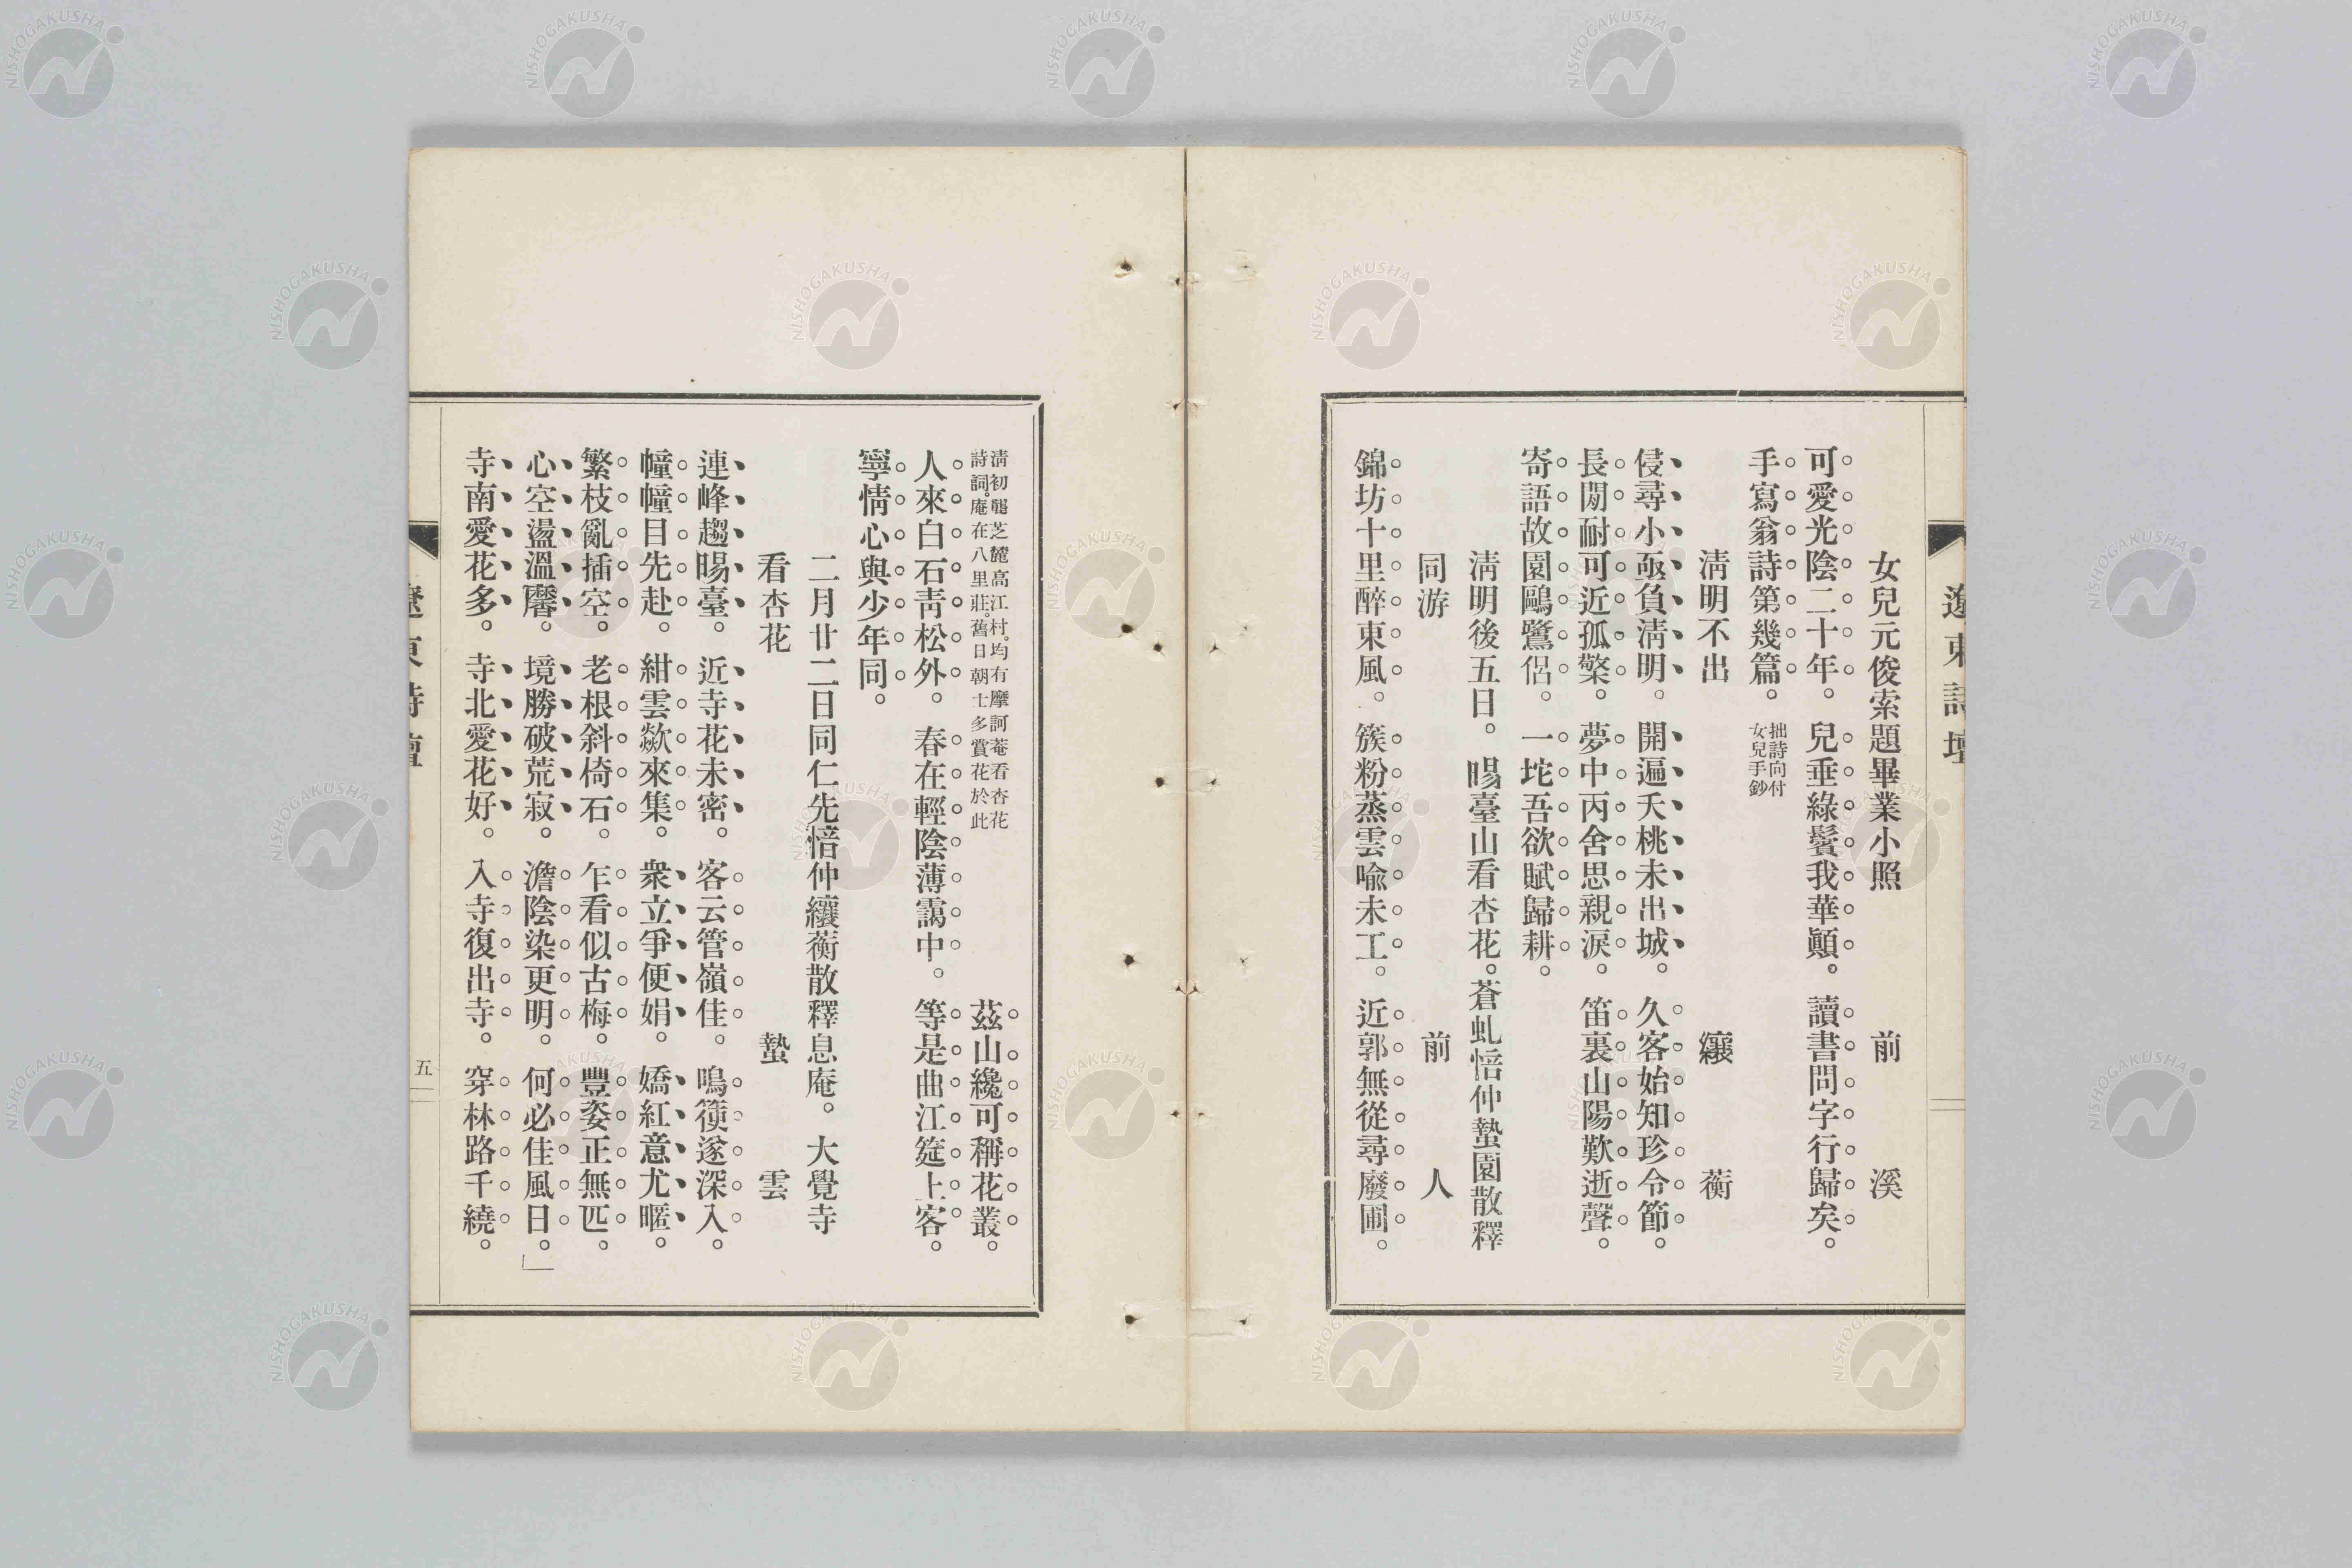 遼東詩壇
女兒元俊索題畢業小照　前溪
可愛光陰二十年。兒垂綠鬢我華顚。讀書問字行歸矣。
手寫翁詩第幾篇。拙詩向付女兒手鈔
淸明不出　纕蘅
侵尋小亟負淸明。開遍夭桃未出城。久客始知珍令節。
長閒耐可近孤檠。夢中丙舍思親淚。笛裏山陽歎逝聲。
寄語故園鷗鷺侶。一坨吾欲賦歸耕。
淸明後五日。暘臺山看杏花。蒼虬愔仲蟄園散釋
同游　前人
錦坊十里醉東風。簇粉蒸雲喩未工。近郭無從尋廢圃。
淸初龔芝麓高江村。均有摩訶菴看杏花詩詞。庵在八里莊。舊日朝士多賞花於此
茲山纔可稱花叢。
人來白石靑松外。春在輕陰薄靄中。等是曲江筵上客。
寧情心與少年同。
二月廿二日同仁先愔仲纕蘅散釋息庵。大覺寺
看杏花　蟄雲
連峰趨暘臺。近寺花未密。客云管嶺佳。鳴筴遂深入。
幢幢目先赴。紺雲歘來集。衆立爭便娟。嬌紅意尤暱。
繁枝亂插空。老根斜倚石。乍看似古梅。豐姿正無匹。
心空盪溫麐。境勝破荒寂。澹陰染更明。何必佳風日。」
寺南愛花多。寺北愛花好。入寺復出寺。穿林路千繞。
遼東詩壇
五
NISHOGAKUSHA